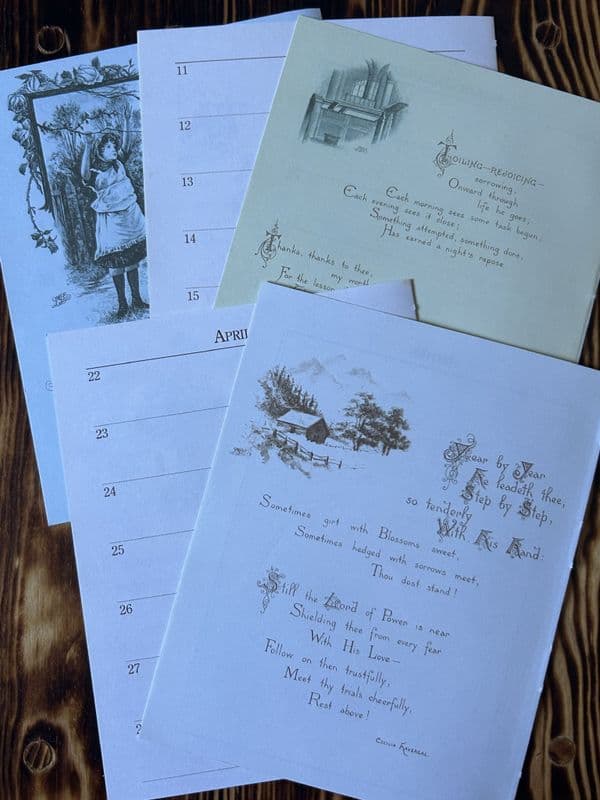 11
12
13
14
15
Toiling—rejoicing—
sorrowing,
Onward through
life he goes;
Each morning sees some task begun,
Each evening sees it close;
Something attempted, something done,
Has earned a night's repose
Thanks, thanks to thee,
my
For the lesson
April
22
23
24
25
26
27
Year by Year
He leadeth thee,
Step by Step,
so tenderly
With His Hand:
Sometimes girt with Blossoms sweet,
Sometimes hedged with sorrows meet,
Thou dost stand!
Still the Lord of Power is near
Shielding thee from every fear
With His Love—
Follow on then trustfully,
Meet thy trials cheerfully,
Rest above!
Cecilia Havergal